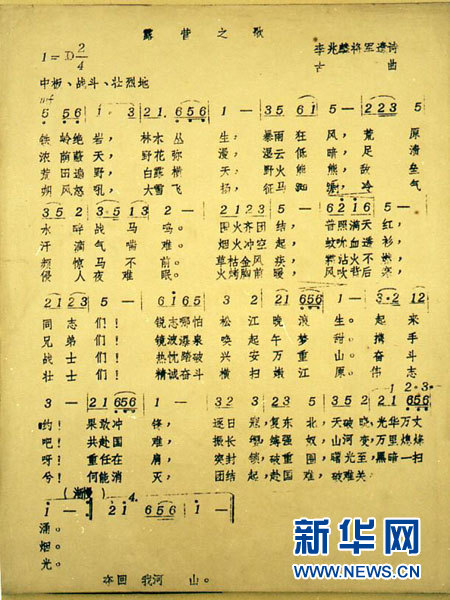 露营之歌
1=D 2/4 李兆麟将军遗诗
古曲
中板、战斗、壮烈地
mf
5 56 1· 3 21 656 1 — 35 61 5 — 2235
铁岭绝岩，林木丛生，暴雨狂风，荒原
浓荫蔽天，野花弥漫，湿云低暗，足溃
荒田遍野，白露横天，野火熊熊，敌垒
朔风怒吼，大雪飞扬，征马踟蹰，冷气
35 2 3·513 5 — 2123 5 — 6216 5 —
水畔战马鸣。围火齐团结，普照满天红，
汗滴气喘难。烟火冲空起，蚊吮血透衫。
频惊马不前。草枯金风疾，霜沾火不燃。
侵人夜难眠。火烤胸前暖，风吹背后寒。
2123 5 — 6·165 3 2 21 656 1 — 3·2 32
同志们！锐志哪怕松江晚浪生。起来
兄弟们！镜泊瀑泉唤起午梦甜。携手
战士们！热忱踏破兴安万重山。奋斗
壮士们！精诚奋斗横扫嫩江原。伟志
1·2·3·
3 — 21 656 1 — 23 5 35 2 35 2 21 656
约！果敢冲锋，逐日寇，复东北，天破晓，光华万丈
吧！共赴国难，振长缨，缚强奴，山河变，万里熄烽
呀！重任在肩，突封锁，破重围，曙光至，黑暗一扫
兮！何能消灭，团结起，赴国难，破难关
（渐慢） 4.
1 — 21 656 1 —
涌。
烟。
光。
夺回我河山。
新华网
WWW.NEWS.CN